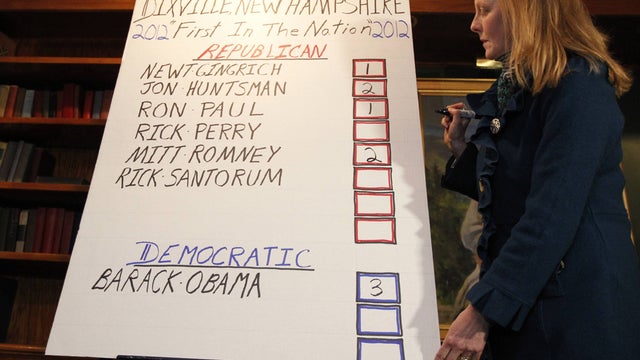 DIXVILLE NEW HAMPSHIRE
2012 "FIRST IN THE NATION" 2012
REPUBLICAN
NEWT GINGRICH 1
JON HUNTSMAN 2
RON PAUL 1
RICK PERRY
MITT ROMNEY 2
RICK SANTORUM
DEMOCRATIC
BARACK OBAMA 3